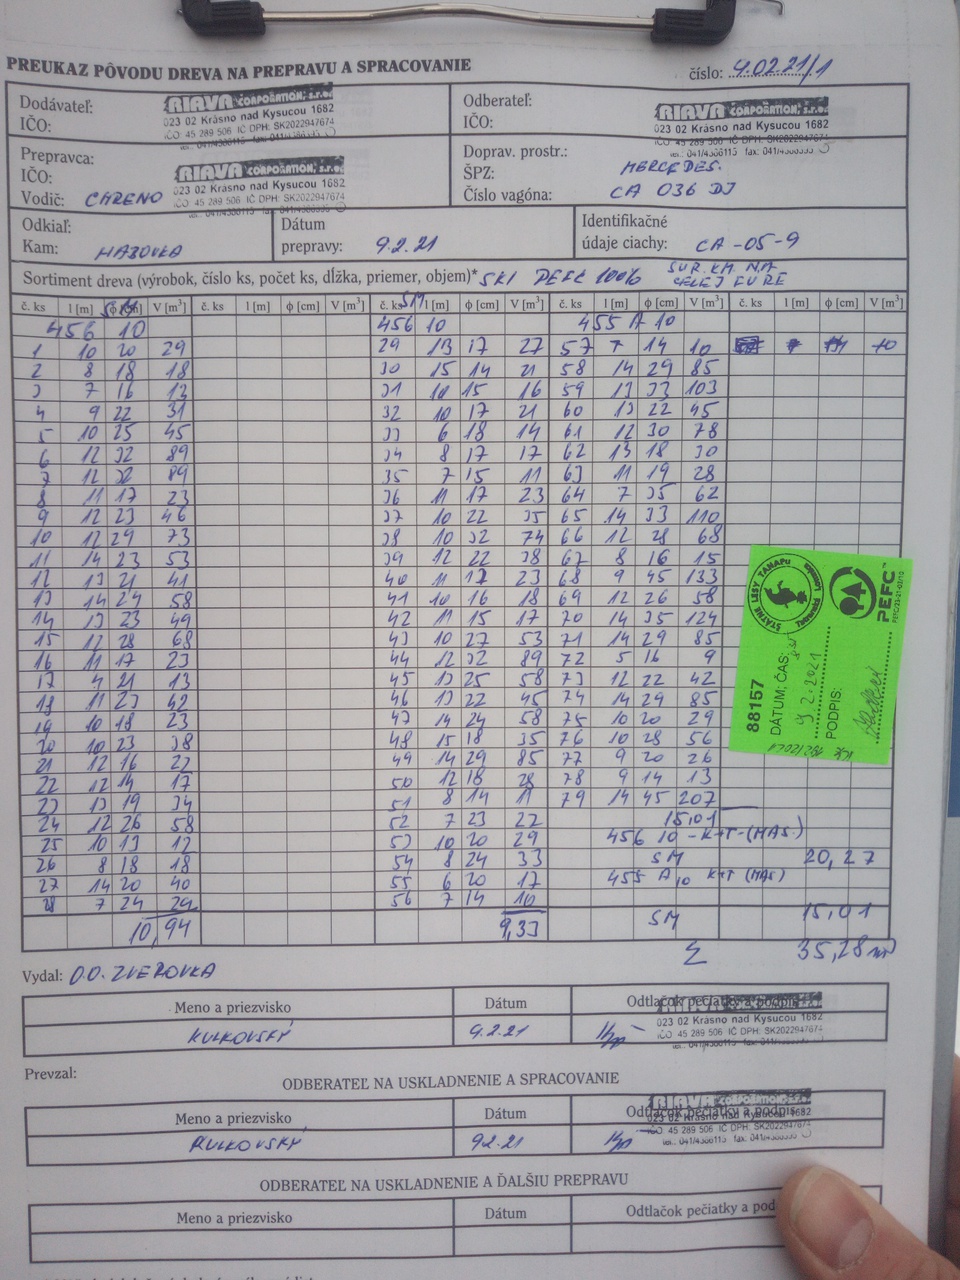 PREUKAZ PÔVODU DREVA NA PREPRAVU A SPRACOVANIE
číslo: 9.02.21/1
Dodávateľ:
IČO:
RIAVA CORPORATION, s.r.o.
023 02 Krásno nad Kysucou 1682
IČO 45 289 506 IČ DPH: SK2022947674
Odberateľ:
IČO:
RIAVA CORPORATION, s.r.o.
023 02 Krásno nad Kysucou 1682
IČO 45 289 506 IČ DPH: SK2022947674
tel.: 041/4386115 fax: 041/4386335
Prepravca:
IČO:
Vodič:
RIAVA CORPORATION, s.r.o.
023 02 Krásno nad Kysucou 1682
IČO 45 289 506 IČ DPH: SK2022947674
Doprav. prostr.:
ŠPZ: MERCEDES.
Číslo vagóna: CA 036 DJ
Odkiaľ:
Kam:
Dátum
prepravy: 9.2.21
Identifikačné
údaje ciachy: CA-05-9
Sortiment dreva (výrobok, číslo ks, počet ks, dĺžka, priemer, objem)* SKI PEFC 100%
SUR.KM. NA
CELEJ FURE
č. ks l [m] ϕ [cm] V [m³] č. ks l [m] ϕ [cm] V [m³] č. ks l [m] ϕ [cm] V [m³] č. ks l [m] ϕ [cm] V [m³] č. ks l [m] ϕ [cm] V [m³]
SM
456 10 456 10 455 A 10
1 10 20 29 29 13 17 27 57 7 14 10
2 8 18 18 30 15 14 21 58 14 29 85
3 7 16 13 31 10 15 16 59 13 33 103
4 9 22 31 32 10 17 21 60 13 22 45
5 10 25 45 33 6 18 14 61 12 30 78
6 12 32 89 34 8 17 17 62 13 18 30
7 12 32 89 35 7 15 11 63 11 19 28
8 11 17 23 36 11 17 23 64 7 35 62
9 12 23 46 37 10 22 35 65 14 33 110
10 12 29 73 38 10 32 74 66 12 28 68
11 14 23 53 39 12 22 38 67 8 16 15
12 13 21 41 40 11 17 23 68 9 45 133
13 14 24 58 41 10 16 18 69 12 26 58
14 13 23 49 42 11 15 17 70 14 35 124
15 12 28 68 43 10 27 53 71 14 29 85
16 11 17 23 44 12 32 89 72 5 16 9
17 4 21 13 45 13 25 58 73 12 22 42
18 11 23 42 46 13 22 45 74 14 29 85
19 10 18 23 47 14 24 58 75 10 20 29
20 10 23 38 48 15 18 35 76 10 28 56
21 12 16 22 49 14 29 85 77 9 20 26
22 12 14 17 50 12 18 28 78 9 14 13
23 13 19 34 51 8 14 11 79 14 45 207
24 12 26 58 52 7 23 22 15,01
25 10 13 12 53 10 20 29 456 10 - K+T - (MAS.)
26 8 18 18 54 8 24 33 SM 20,27
27 14 20 40 55 6 20 17 455 A10 K+T (MAS)
28 7 24 29 56 7 14 10
10,94 9,33 SM 15,01
Σ 35,28 m³
ŠTÁTNE LESY TANAPu
PEFC™
88157
DÁTUM; ČAS:
9.2.2021
PODPIS:
Vydal: O.O. ZVEROVKA
Meno a priezvisko Dátum Odtlačok pečiatky a podpis
KULKOVSKÝ 9.2.21
023 02 Krásno nad Kysucou 1682
IČO 45 289 506 IČ DPH: SK2022947674
Prevzal:
ODBERATEĽ NA USKLADNENIE A SPRACOVANIE
Meno a priezvisko Dátum Odtlačok pečiatky a podpis
KULKOVSKÝ 9.2.21
RIAVA CORPORATION, s.r.o.
023 02 Krásno nad Kysucou 1682
IČO 45 289 506 IČ DPH: SK2022947674
tel.: 041/4386115 fax: 041/4386335
ODBERATEĽ NA USKLADNENIE A ĎALŠIU PREPRAVU
Meno a priezvisko Dátum Odtlačok pečiatky a pod